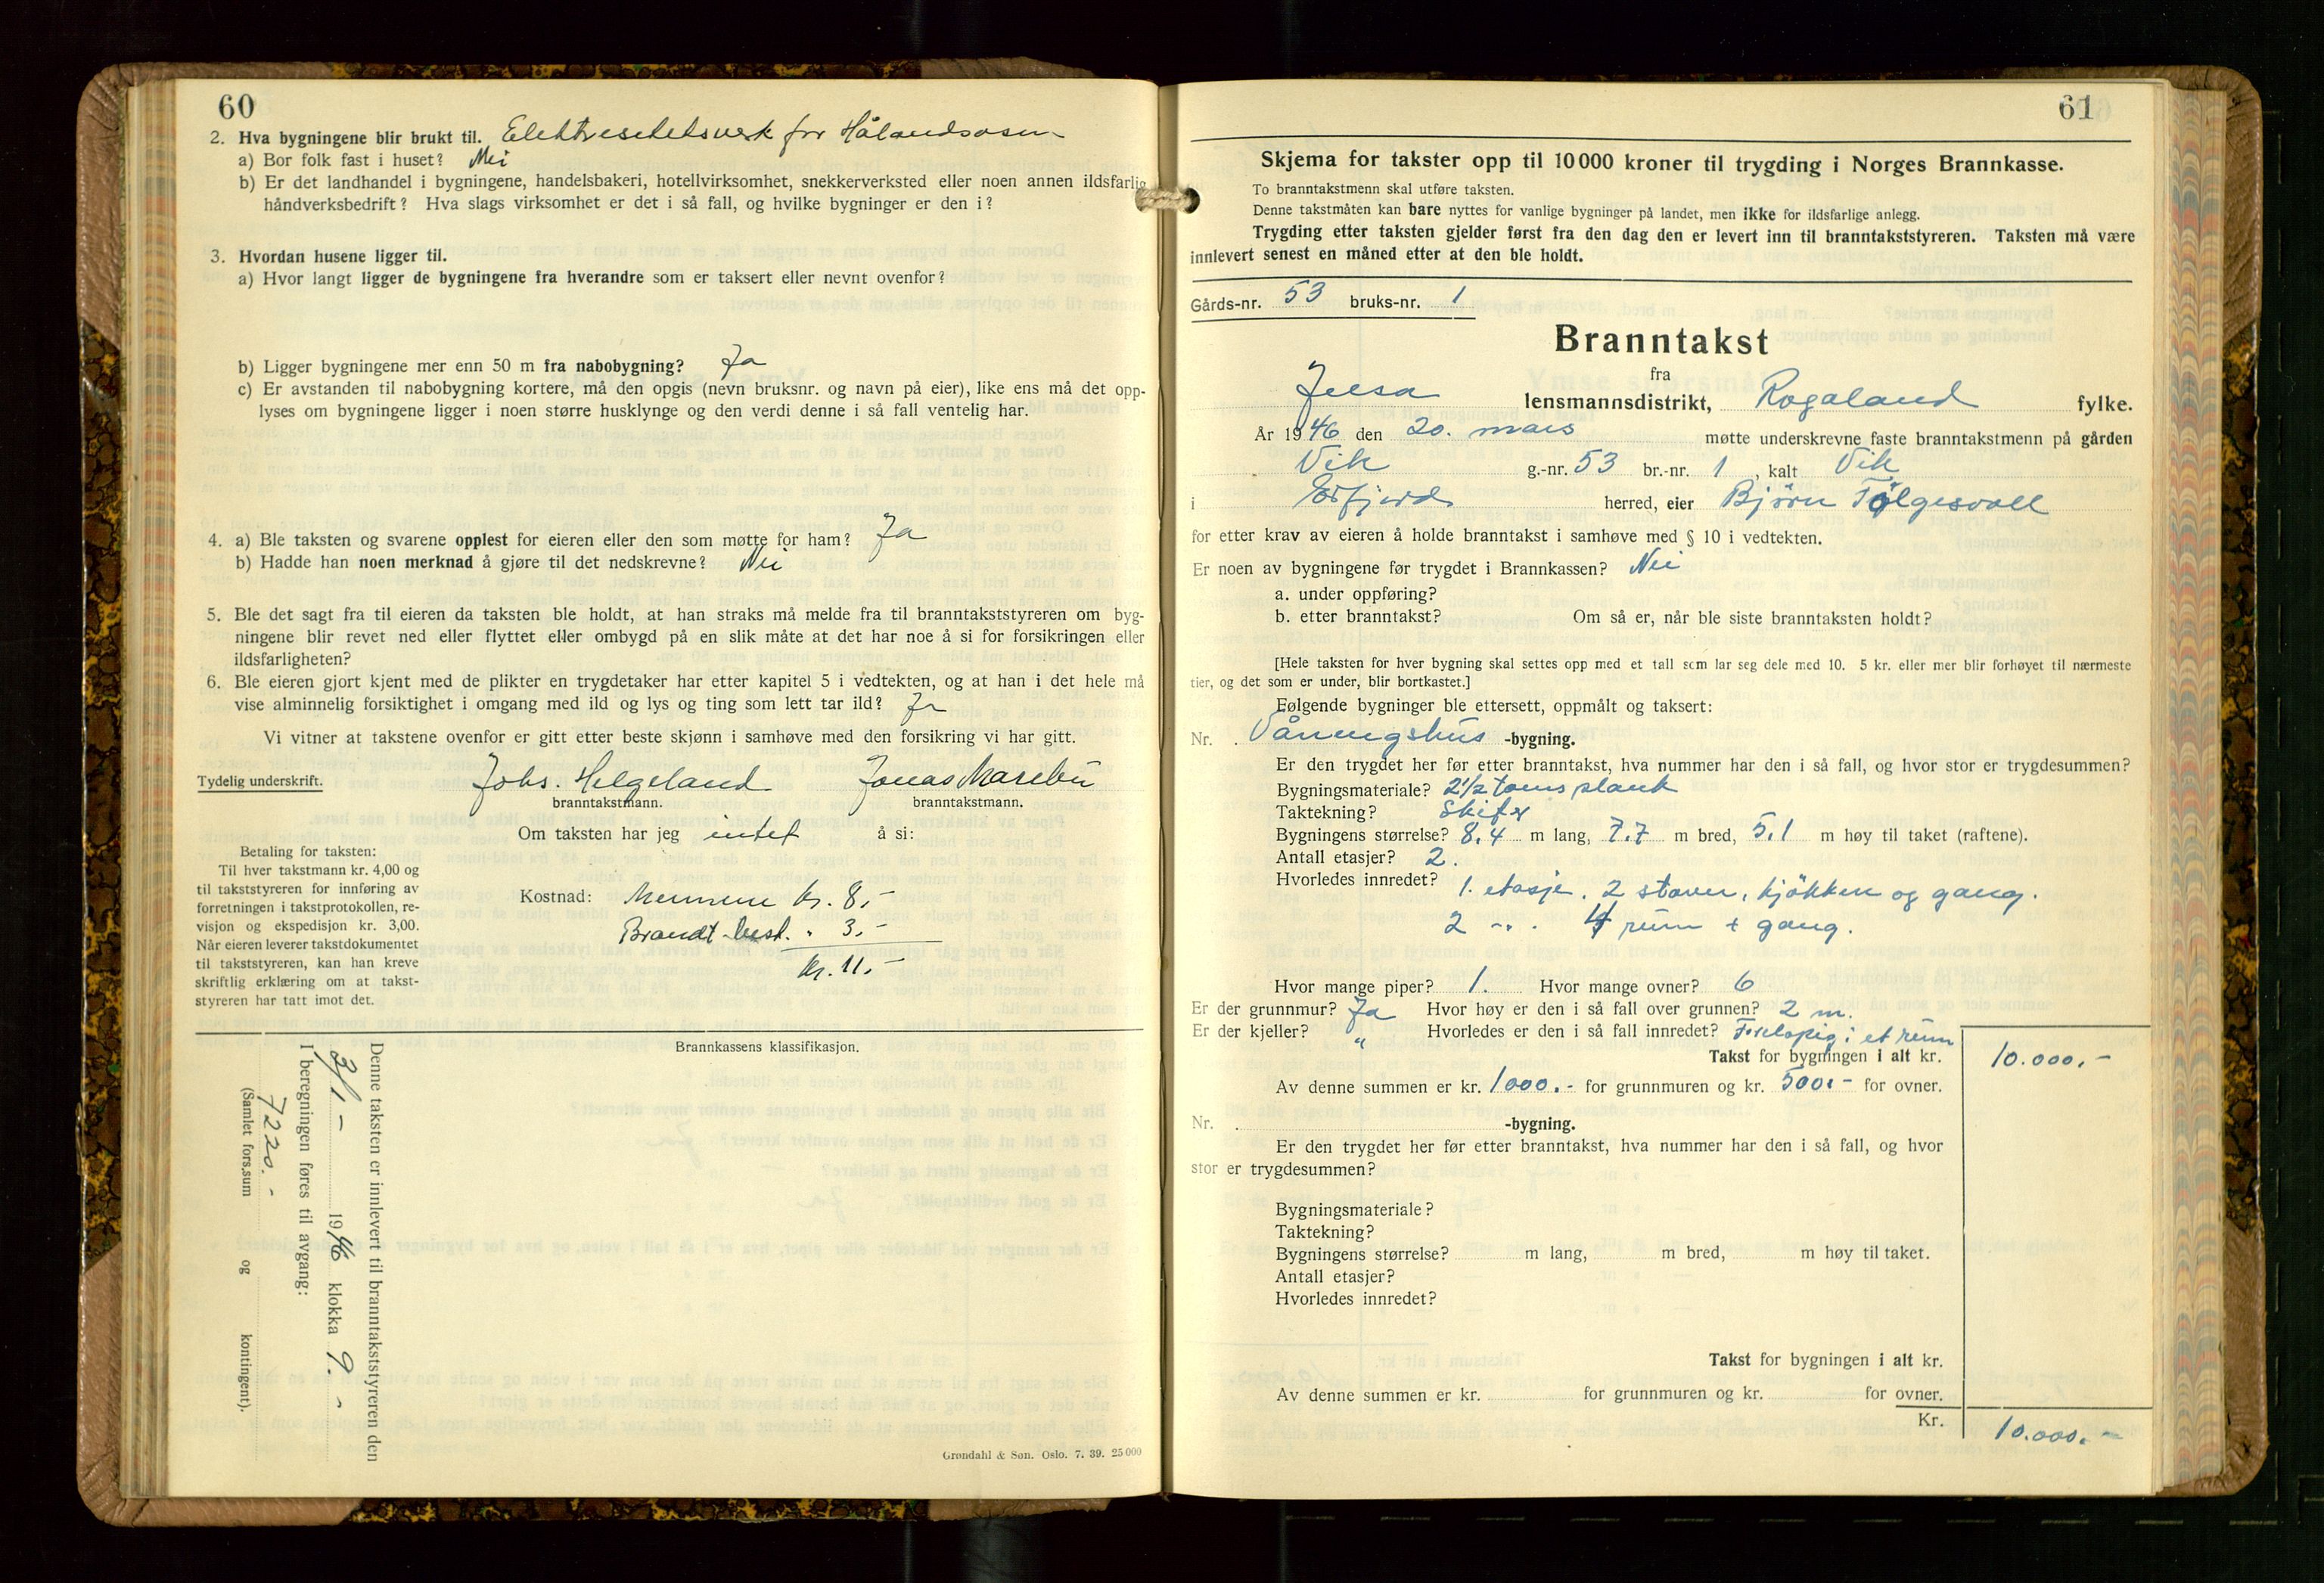 60
2. Hva bygningene blir brukt til. Elektresitetsverk for Hålandsosen
a) Bor folk fast i huset? Nei
b) Er det landhandel i bygningene, handelsbakeri, hotellvirksomhet, snekkerverksted eller noen annen ildsfarlig
håndverksbedrift? Hva slags virksomhet er det i så fall, og hvilke bygninger er den i?
3. Hvordan husene ligger til.
a) Hvor langt ligger de bygningene fra hverandre som er taksert eller nevnt ovenfor?
b) Ligger bygningene mer enn 50 m fra nabobygning? Ja
c) Er avstanden til nabobygning kortere, må den opgis (nevn bruksnr. og navn på eier), like ens må det opp-
lyses om bygningene ligger i noen større husklynge og den verdi denne i så fall ventelig har.
4. a) Ble taksten og svarene opplest for eieren eller den som møtte for ham? Ja
b) Hadde han noen merknad å gjøre til det nedskrevne? Nei
5. Ble det sagt fra til eieren da taksten ble holdt, at han straks må melde fra til branntakststyreren om byg-
ningene blir revet ned eller flyttet eller ombygd på en slik måte at det har noe å si for forsikringen eller
ildsfarligheten?
6. Ble eieren gjort kjent med de plikter en trygdetaker har etter kapitel 5 i vedtekten, og at han i det hele må
vise alminnelig forsiktighet i omgang med ild og lys og ting som lett tar ild? Ja
Vi vitner at takstene ovenfor er gitt etter beste skjønn i samhøve med den forsikring vi har gitt.
Tydelig underskrift. Johs. Helgeland Jonas Marebu
branntakstmann. branntakstmann.
Om taksten har jeg intet å si:
Betaling for taksten:
Til hver takstmann kr. 4,00 og
til takststyreren for innføring av
forretningen i takstprotokollen, re-
visjon og ekspedisjon kr. 3,00.
Når eieren leverer takstdokumentet
til takststyreren, kan han kreve
skriftlig erklæring om at takst-
styreren har tatt imot det.
Kostnad: Mennene Kr. 8,-
Brandt best. " 3,-
Kr. 11,-
Brannkassens klassifikasjon.
Denne taksten er innlevert til branntakststyreren den
2/1 - 1946 klokka 9. -
I beregningen føres til avgang:
7220. -
(Samlet fors.sum og kontingent).
Grøndahl & Søn. Oslo. 7. 39. 25 000
61
Skjema for takster opp til 10 000 kroner til trygding i Norges Brannkasse.
To branntakstmenn skal utføre taksten.
Denne takstmåten kan bare nyttes for vanlige bygninger på landet, men ikke for ildsfarlige anlegg.
Trygding etter taksten gjelder først fra den dag den er levert inn til branntakststyreren. Taksten må være
innlevert senest en måned etter at den ble holdt.
Gårds-nr. 53 bruks-nr. 1
Branntakst
fra
Jelsa lensmannsdistrikt, Rogaland fylke.
År 1946 den 20. mars møtte underskrevne faste branntakstmenn på gården
Vik g.-nr. 53 br.-nr. 1, kalt Vik
i Erfjord herred, eier Bjørn Tølgesvoll
for etter krav av eieren å holde branntakst i samhøve med § 10 i vedtekten.
Er noen av bygningene før trygdet i Brannkassen? Nei
a. under oppføring?
b. etter branntakst? Om så er, når ble siste branntaksten holdt?
[Hele taksten for hver bygning skal settes opp med et tall som lar seg dele med 10. 5 kr. eller mer blir forhøyet til nærmeste
tier, og det som er under, blir bortkastet.]
Følgende bygninger ble ettersett, oppmålt og taksert:
Nr. Våningshus -bygning.
Er den trygdet her før etter branntakst, hva nummer har den i så fall, og hvor stor er trygdesummen?
Bygningsmateriale? 2 1/2 toms plank
Taktekning? Skifer
Bygningens størrelse? 8,4 m lang, 7.7 m bred, 5,1 m høy til taket (raftene).
Antall etasjer? 2.
Hvorledes innredet? 1. etasje. 2 stover, kjökken og gang.
2 -"- 4 rum + gang.
Hvor mange piper? 1. Hvor mange ovner? 6
Er der grunnmur? Ja Hvor høy er den i så fall over grunnen? 2 m.
Er der kjeller? " Hvorledes er den i så fall innredet? Foreløpig i et rum
Takst for bygningen i alt kr. 10.000,-
Av denne summen er kr. 1000.- for grunnmuren og kr. 500.- for ovner.
Nr. -bygning.
Er den trygdet her før etter branntakst, hva nummer har den i så fall, og hvor
stor er trygdesummen?
Bygningsmateriale?
Taktekning?
Bygningens størrelse? m lang, m bred, m høy til taket.
Antall etasjer?
Hvorledes innredet?
Takst for bygningen i alt kr.
Av denne summen er kr. for grunnmuren og kr. for ovner.
Kr. 10.000,-